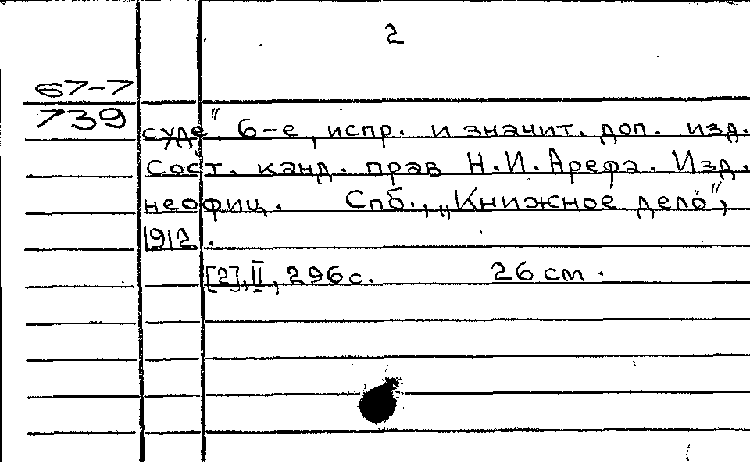 2
67-7
739
суде" 6-е, испр. и значит. доп. изд.
Сост. канд. прав Н.И.Арефа. Изд.
неофиц. Спб., „Книжное дело",
1912.
[2], II, 296с. 26 см.